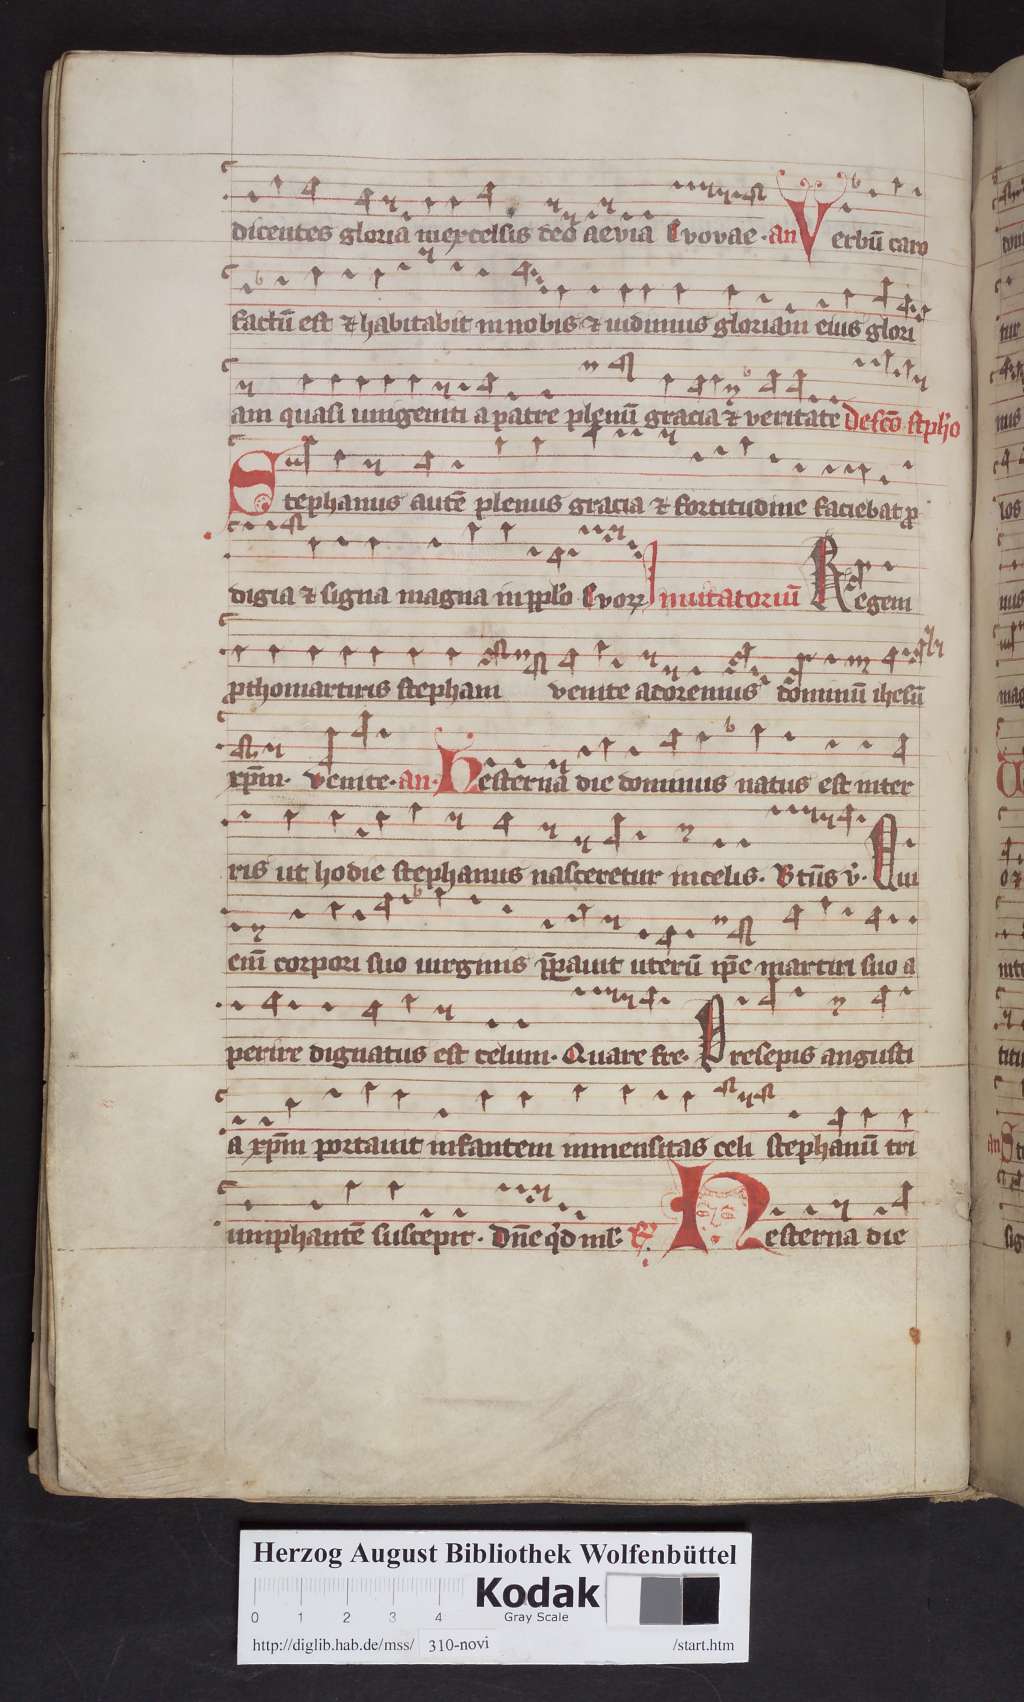 dicentes gloria in excelsis deo aevia Evovae · an Verbū caro
factū est ⁊ habitabit in nobis ⁊ vidimus gloriam eius glori
am quasi unigeniti a patre plenū gracia ⁊ veritate De scō stpho
Stephanus autē plenus gracia ⁊ fortitudine faciebat ꝓ
digia ⁊ signa magna in pplo Evor Invitatoriū Regem
ꝓthomartiris stephani venite adoremus dominū ihesū
xpm̄ · Venite · an · Hesterna die dominus natus est in ter
ris ut hodie stephanus nasceretur in celis. Btūs v. Qui
enī corpori suo virginis p̄pavit uterū ip̄e martiri suo a
perire dignatus est celum · Quare fre · Presepis angusti
a xpm̄ portavit infantem inmensitas celi stephanū tri
umphantē suscepit · Dn̄e qͥd ml̄t R. Hesterna die
Herzog August Bibliothek Wolfenbüttel
Kodak
Gray Scale
0 1 2 3 4
http://diglib.hab.de/mss/ 310-novi /start.htm